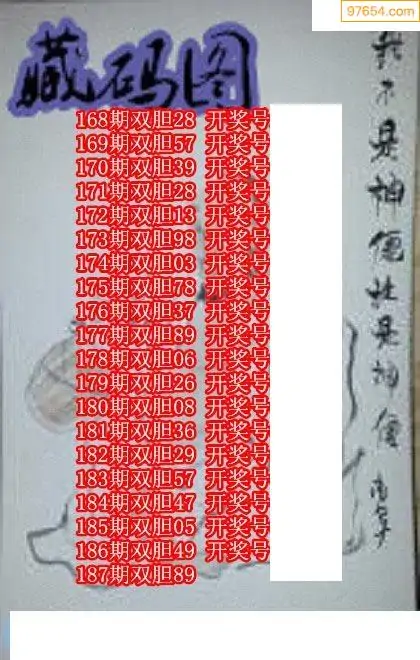 97654.com
藏码图
168期双胆28 开奖号
169期双胆57 开奖号
170期双胆39 开奖号
171期双胆28 开奖号
172期双胆13 开奖号
173期双胆98 开奖号
174期双胆03 开奖号
175期双胆78 开奖号
176期双胆37 开奖号
177期双胆89 开奖号
178期双胆06 开奖号
179期双胆26 开奖号
180期双胆08 开奖号
181期双胆36 开奖号
182期双胆29 开奖号
183期双胆57 开奖号
184期双胆47 开奖号
185期双胆05 开奖号
186期双胆49 开奖号
187期双胆89
我不是神便社是神便